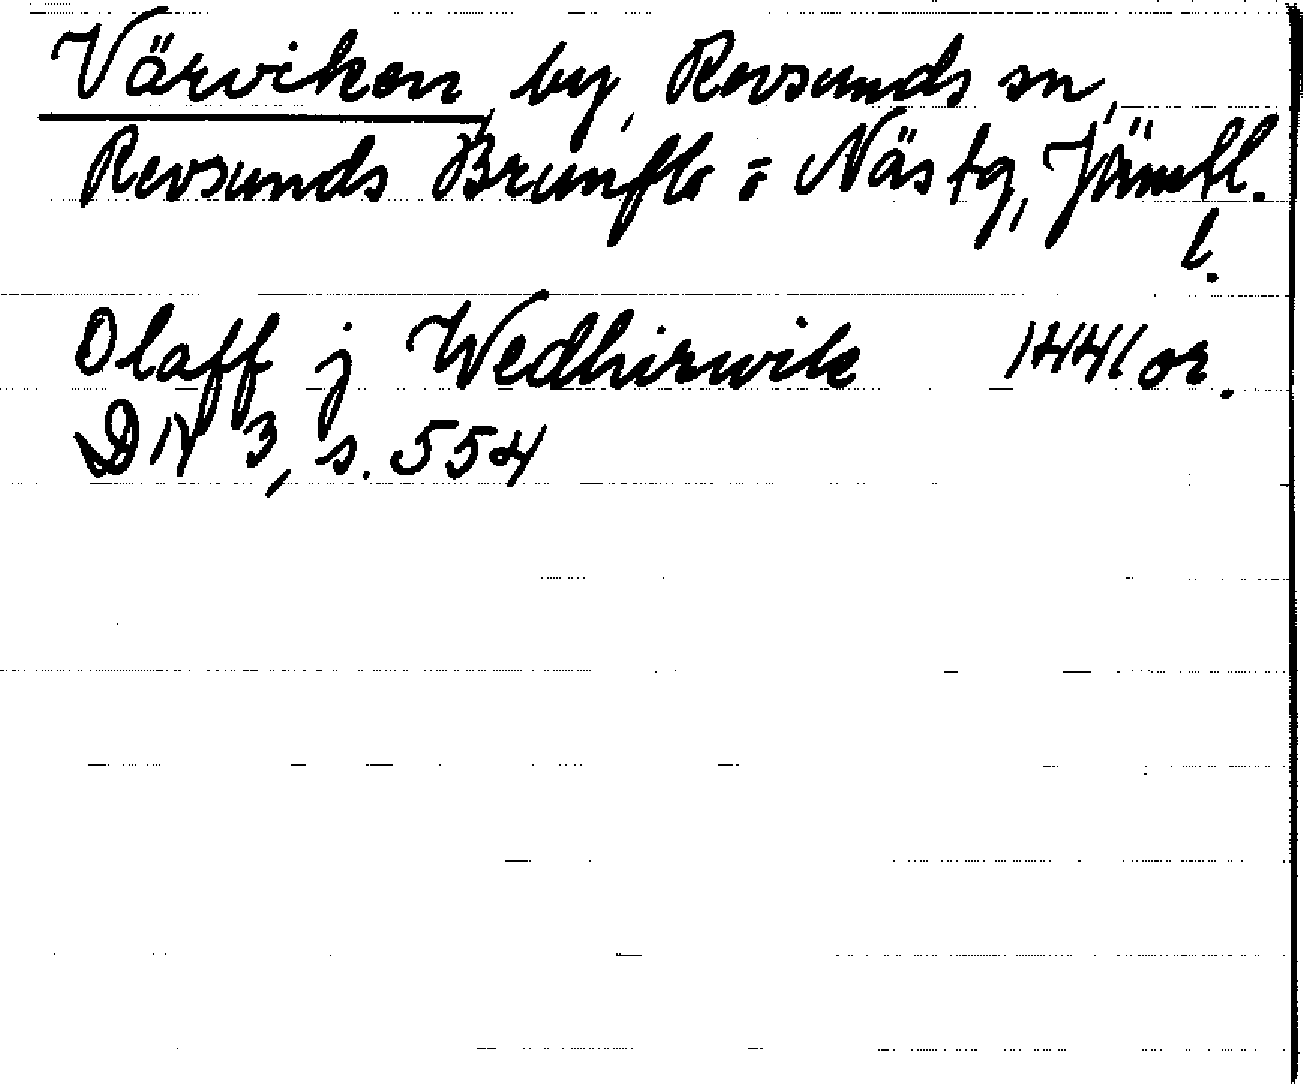 Värviken, by, Revsunds sn,
Revsunds Brunflo o Näs tg, Jämtl.
l.
Olaff j Wedhirwik 1441 or.
DN 3, s. 554